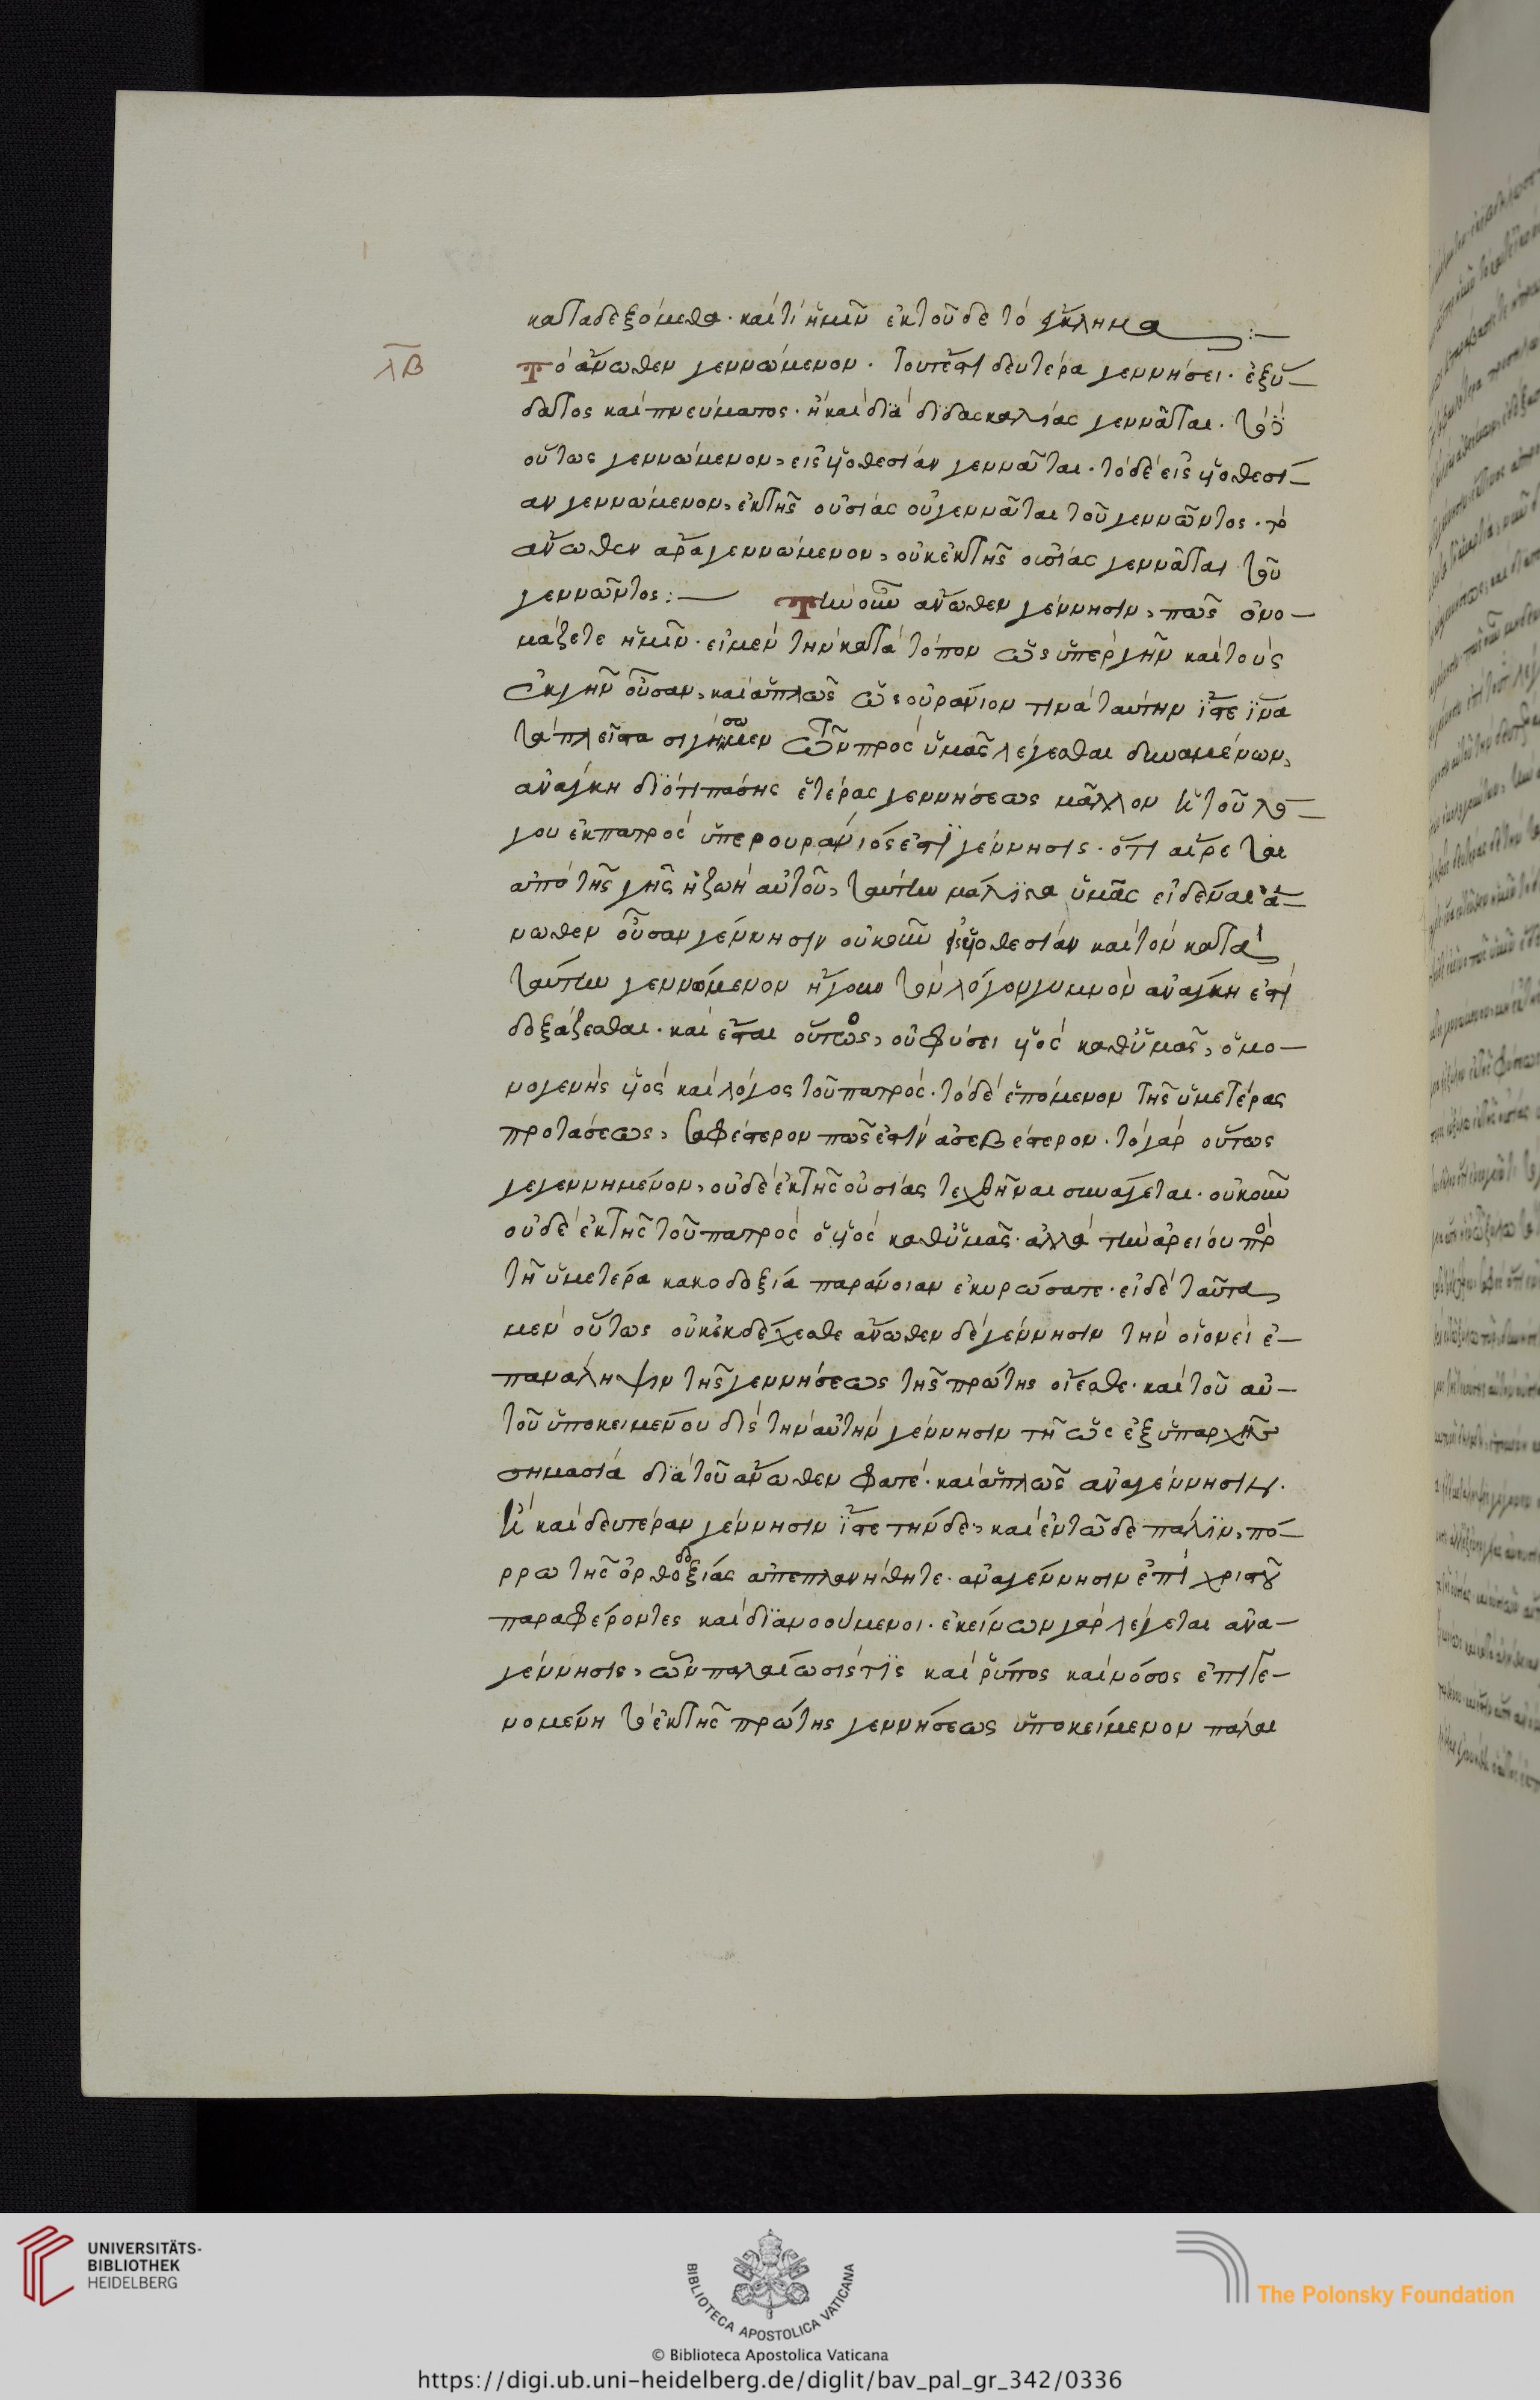 καταδεξόμεθα· καὶ τί ἡμῖν ἐκ τοῦδε τὸ ἔγκλημα :—
λβ
Τὸ ἄνωθεν γεννώμενον· τουτέστι δευτέρα γεννήσει· ἐξ ὕ—
δατος καὶ πνεύματος· ἢ καὶ διὰ διδασκαλίας γεννᾶται· τὸ δὲ
οὕτως γεννώμενον, εἰς υἱοθεσίαν γεννᾶται· τὸ δὲ εἰς υἱοθεσί—
αν γεννώμενον, ἐκ τῆς οὐσίας οὐ γεννᾶται τοῦ γεννῶντος· τὸ
ἄνωθεν ἄρα γεννώμενον, οὐκ ἐκ τῆς οὐσίας γεννᾶται τοῦ
γεννῶντος :— Τὴν οὖν ἄνωθεν γέννησιν, πῶς ὀνο—
μάζετε ἡμῖν· εἰ μὲν τὴν κατὰ τόπον ὡς ὑπὲρ γῆν καὶ τοὺς
ἐκ γῆν οὖσαν, καὶ ἁπλῶς ὡς οὐράνιον τινὰ ταύτην ἴστε ἵνα
τὰ πλεῖστα σιγήσωμεν τῶν πρὸς ὑμᾶς λέγεσθαι δυναμένων,
ἀνάγκη διότι πάσης ἑτέρας γεννήσεως μᾶλλον ἡ τοῦ λό—
γου ἐκ πατρὸς ὑπερουράνιός ἐστι γέννησις· ὅτι αἴρεται
ἀπὸ τῆς γῆς ἡ ζωὴ αὐτοῦ, ταύτην μάλιστα ὑμᾶς εἰδέναι ἄ—
νωθεν οὖσαν γέννησιν οὐκοῦν υἱοθεσίαν καὶ τὸν κατὰ
ταύτην γεννώμενον ἤγουν τὸν λόγον γυμνὸν ἀνάγκη ἐστὶ
δοξάζεσθαι· καὶ ἔσται οὕτως, οὐ φύσει υἱὸς καθ' ὑμᾶς, ὁ μο—
νογενὴς υἱὸς καὶ λόγος τοῦ πατρός· τὸ δὲ ἑπόμενον τῆς ὑμετέρας
προτάσεως, σαφέστερον πῶς ἐστὶν ἀσεβέστερον· τὸ γὰρ οὕτως
γεγεννημένον, οὐδὲ ἐκ τῆς οὐσίας τεχθῆναι συνάγεται· οὐκοῦν
οὐδὲ ἐκ τῆς τοῦ πατρὸς ὁ υἱὸς καθ' ὑμᾶς· ἀλλὰ τὴν ἀρείου πρὸ
τῇ ὑμετέρα κακοδοξία παράνοιαν ἐκυρώσατε· εἰ δὲ ταῦτα
μὲν οὕτως οὐκ ἐκδέχεσθε ἄνωθεν δὲ γέννησιν τὴν οἱονεὶ ἐ—
πανάληψιν τῆς γεννήσεως τῆς πρώτης οἴεσθε· καὶ τοῦ αὐ—
τοῦ ὑποκειμένου δὶς τὴν αὐτὴν γέννησιν τῇ ὡς ἐξ ὑπαρχῆς
σημασία διὰ τοῦ ἄνωθεν φατέ· καὶ ἁπλῶς ἀναγέννησιν·
ἢ καὶ δευτέραν γέννησιν ἴστε τήνδε, καὶ ἐν τῶδε πάλιν, πό—
ρρω τῆς ὀρθοδοξίας ἀπεπλανήθητε· ἀναγέννησιν ἐπὶ χριστοῦ
παραφέροντες καὶ διανοούμενοι· ἐκείνων γὰρ λέγεται ἀνα—
γέννησις, ὧν παλαίωσίς τις καὶ ῥύπος καὶ νόσος ἐπιγε—
νομένη τὸ ἐκ τῆς πρώτης γεννήσεως ὑποκείμενον πάλαι
UNIVERSITÄTS-
BIBLIOTHEK
HEIDELBERG
BIBLIOTECA APOSTOLICA VATICANA
The Polonsky Foundation
© Biblioteca Apostolica Vaticana
https://digi.ub.uni-heidelberg.de/diglit/bav_pal_gr_342/0336